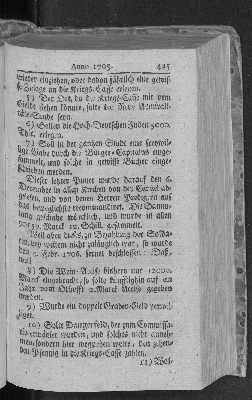 Anno 1705. 425
wieder einziehen, oder davon jährlich eine gewisse
Zulage an die Kriegs-Casse erlegen.
5) Der Rest, da die Kriegs-Casse mit dem
Gelde
stehen könnte, solte
Sande seyn.
6) Sollen die Hoch-Deutschen Juden 3000.
Thlr. erlegen.
7) Soll in der ganzen Stadt eine freywillige
Gabe durch die Bürger-Capitains eingesammelt,
und solche in gewisse Bücher eingeschrieben
werden.
Dieser letzter Punct wurde darauf den 6.
December in allen Kirchen von der Canzel abgelesen,
und von denen Herren Predigern aufs
beweglichste recommandiret. Die Sammlung
geschahe würcklich, und wurde in allen
Marck 12. Schill. gesammelt.
Weil aber dieses zu Bezahlung der Soldatesca
bey weitem nicht zulänglich war, so wurde
den 9. Febr. 1705. ferner beschlossen: Daß,
weil
8) Die Wein-Accise bishero nur 12000.
Marck eingebracht, so solte künfftighin auf ein
Jahr vom Oxhofft 2. Marck Accise gegeben
werden.
9) Wurde ein doppelt Graben-Geld verwilliget.
10) Solte Dauerfeld, der zum Commissario
erwählet worden, und solches nicht annehmen,
sondern hier wegziehen wolte, den zehenden
Pfennig in die Kriegs-Casse zahlen.